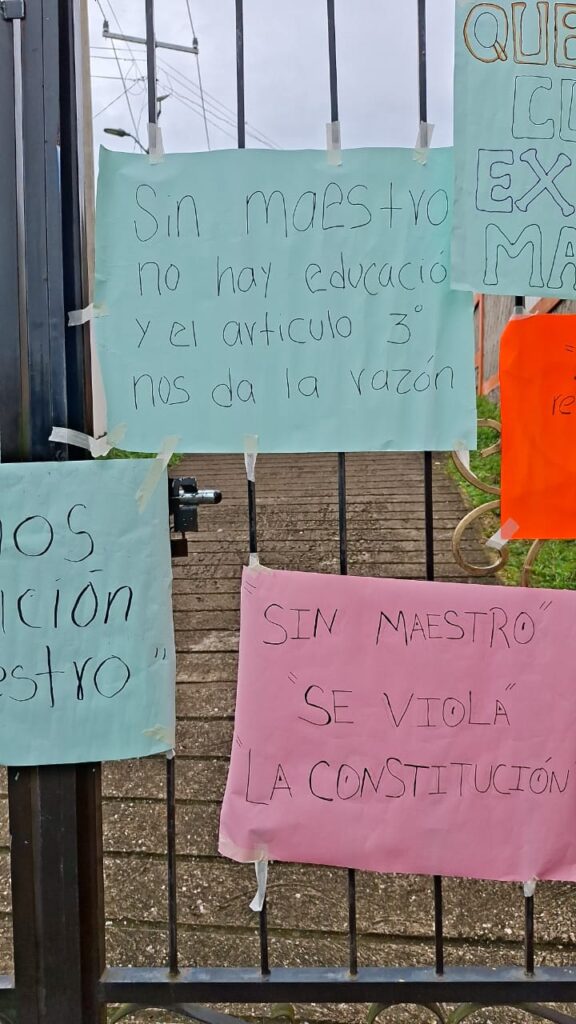 Sin maestro
no hay educació
y el articulo 3°
nos da la razón
QUE
EX
MA
"SIN MAESTRO"
"SE VIOLA"
"LA CONSTITUCIÓN"